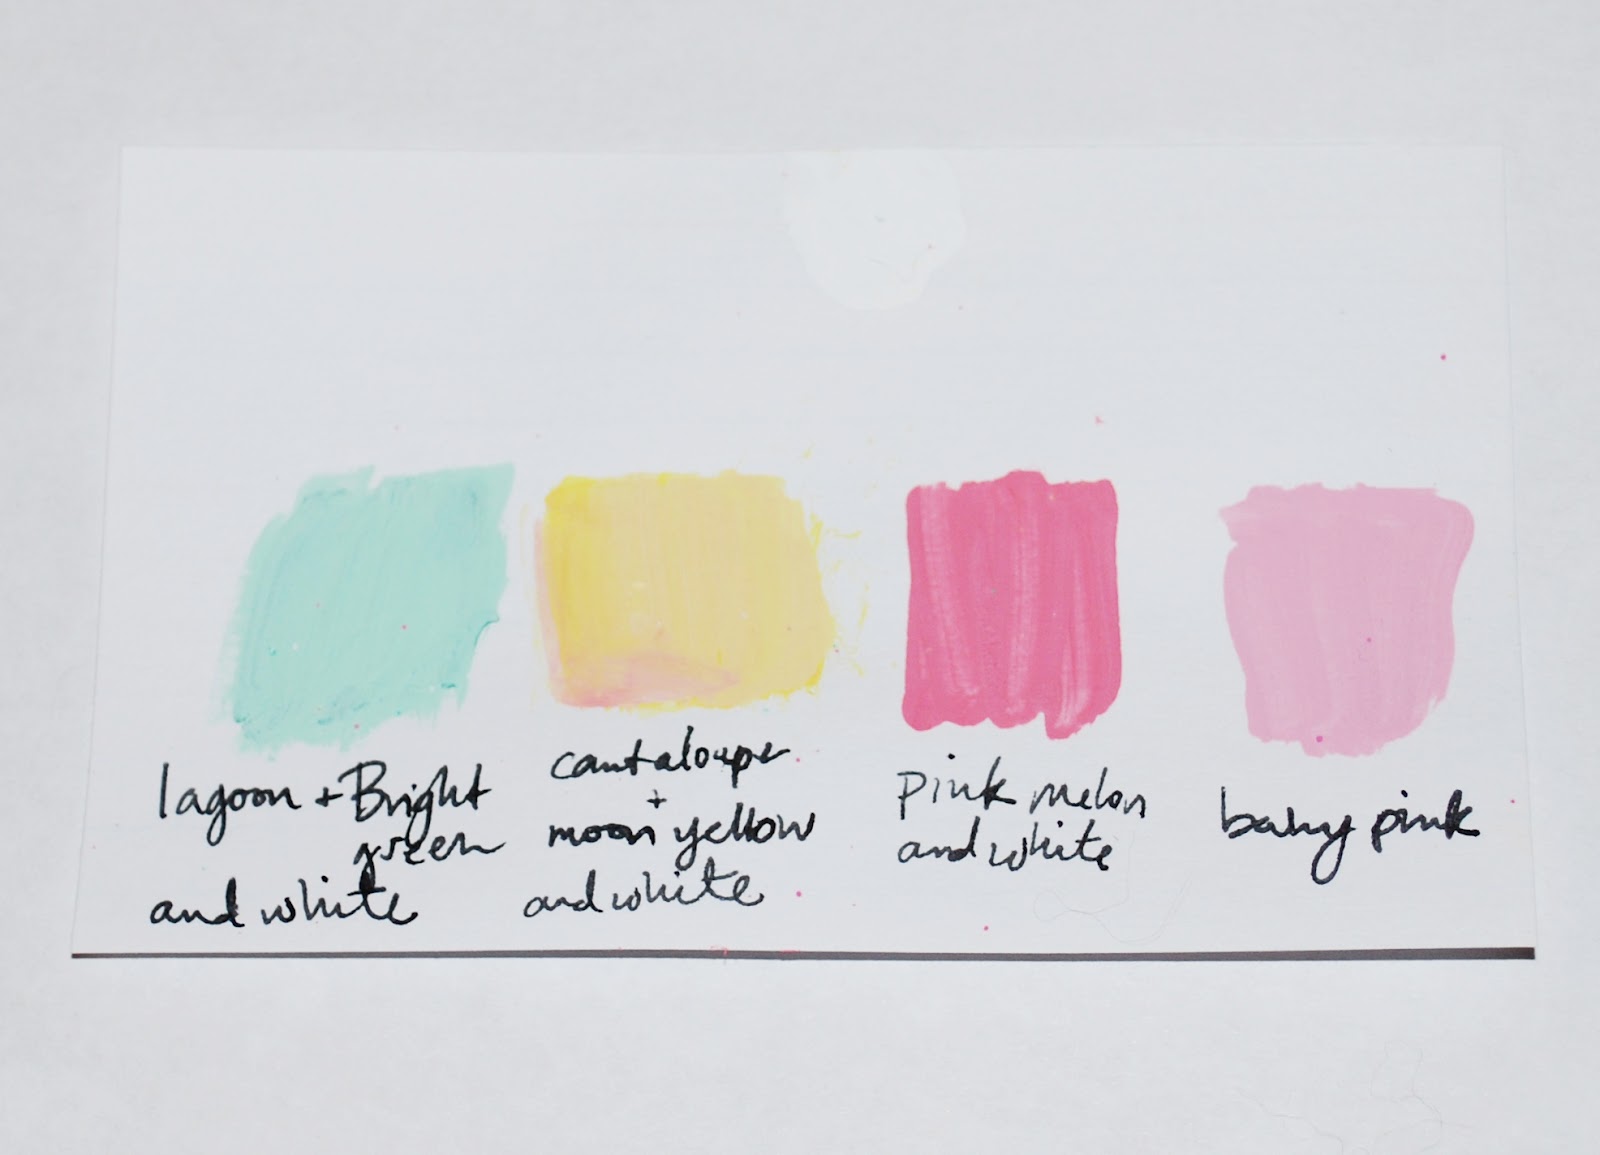 lagoon + Bright
green
and white
cantaloupe
+
moon yellow
and white
pink melon
and white
baby pink